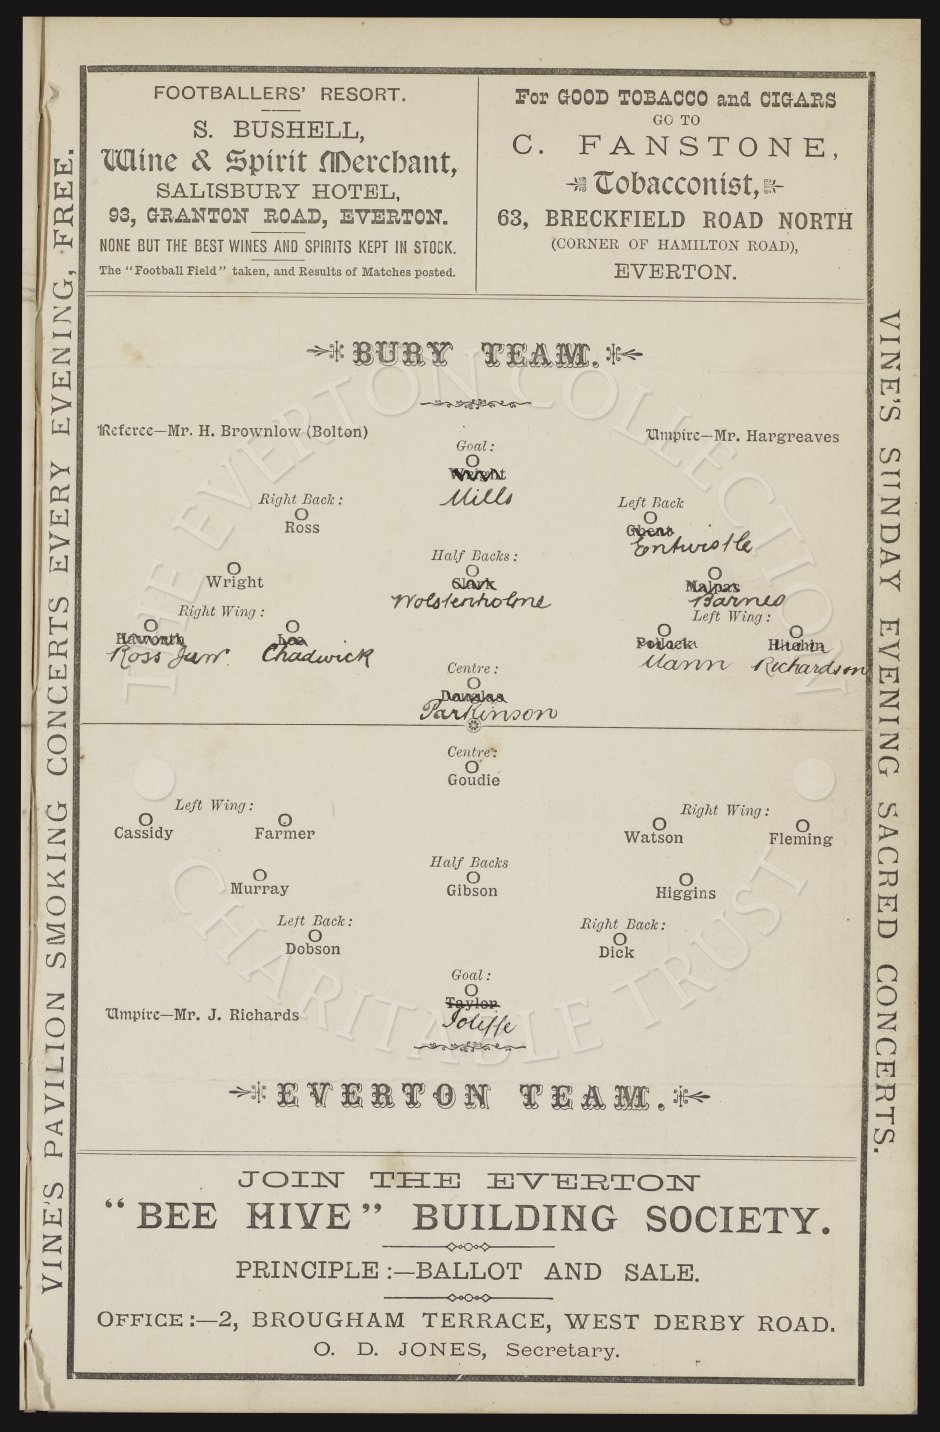 FOOTBALLERS' RESORT.
S. BUSHELL,
Wine & Spirit Merchant,
SALISBURY HOTEL,
93, GRANTON ROAD, EVERTON.
NONE BUT THE BEST WINES AND SPIRITS KEPT IN STOCK.
The "Football Field" taken, and Results of Matches posted.
For GOOD TOBACCO and CIGARS
GO TO
C. FANSTONE,
Tobacconist,
63, BRECKFIELD ROAD NORTH
(CORNER OF HAMILTON ROAD),
EVERTON.
VINE'S PAVILION SMOKING CONCERTS EVERY EVENING, FREE.
VINE'S SUNDAY EVENING SACRED CONCERTS.
BURY TEAM.
Referee—Mr. H. Brownlow (Bolton)
Umpire—Mr. Hargreaves
Goal:
Wright
Mills
Right Back:
Ross
Left Back
Ghent
Entwistle
Half Backs:
Wright
Clark
Wolstenholme
Malpas
Barnes
Right Wing:
Left Wing:
Haworth
Ross Junr.
Lea
Chadwick
Pollock
Mann
Hitchin
Richardson
Centre:
Douglas
Parkinson
Centre:
Goudie
Left Wing:
Right Wing:
Cassidy
Farmer
Watson
Fleming
Half Backs
Murray
Gibson
Higgins
Left Back:
Right Back:
Dobson
Dick
Goal:
Taylor
Joliffe
Umpire—Mr. J. Richards
EVERTON TEAM.
JOIN THE EVERTON
"BEE HIVE" BUILDING SOCIETY.
PRINCIPLE:—BALLOT AND SALE.
OFFICE:—2, BROUGHAM TERRACE, WEST DERBY ROAD.
O. D. JONES, Secretary.
THE EVERTON COLLECTION
CHARITABLE TRUST